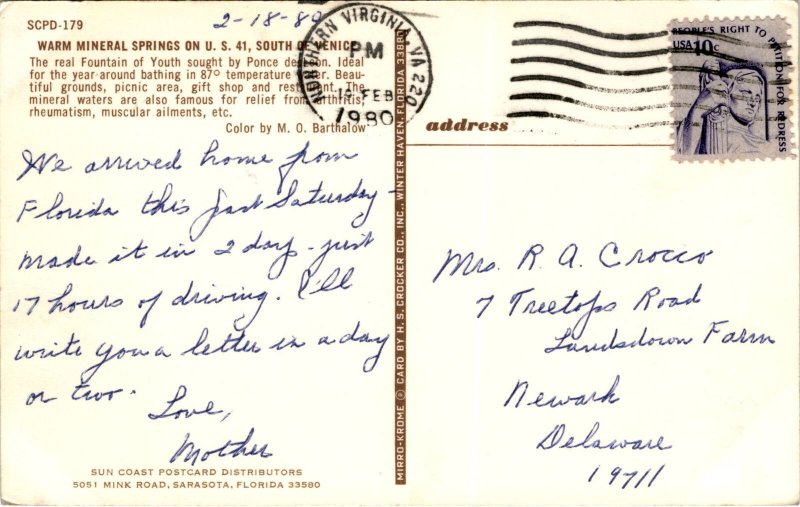 SCPD-179
2-18-80
WARM MINERAL SPRINGS ON U. S. 41, SOUTH OF VENICE
The real Fountain of Youth sought by Ponce de Leon. Ideal
for the year around bathing in 87° temperature water. Beau-
tiful grounds, picnic area, gift shop and restaurant. The
mineral waters are also famous for relief from arthritis,
rheumatism, muscular ailments, etc.
Color by M. O. Barthalow
We arrived home from
Florida this past Saturday -
made it in 2 days - just
17 hours of driving. I'll
write you a letter in a day
or two.
Love,
Mother
SUN COAST POSTCARD DISTRIBUTORS
5051 MINK ROAD, SARASOTA, FLORIDA 33580
MIRRO-KROME ® CARD BY H. S. CROCKER CO., INC., WINTER HAVEN, FLORIDA 33880
NORTHERN VIRGINIA, VA 220
PM
FEB
1980
PEOPLE'S RIGHT TO PETITION FOR REDRESS
USA 10c
address
Mrs. R. A. Crocco
7 Treetops Road
Landsdown Farm
Newark
Delaware
19711